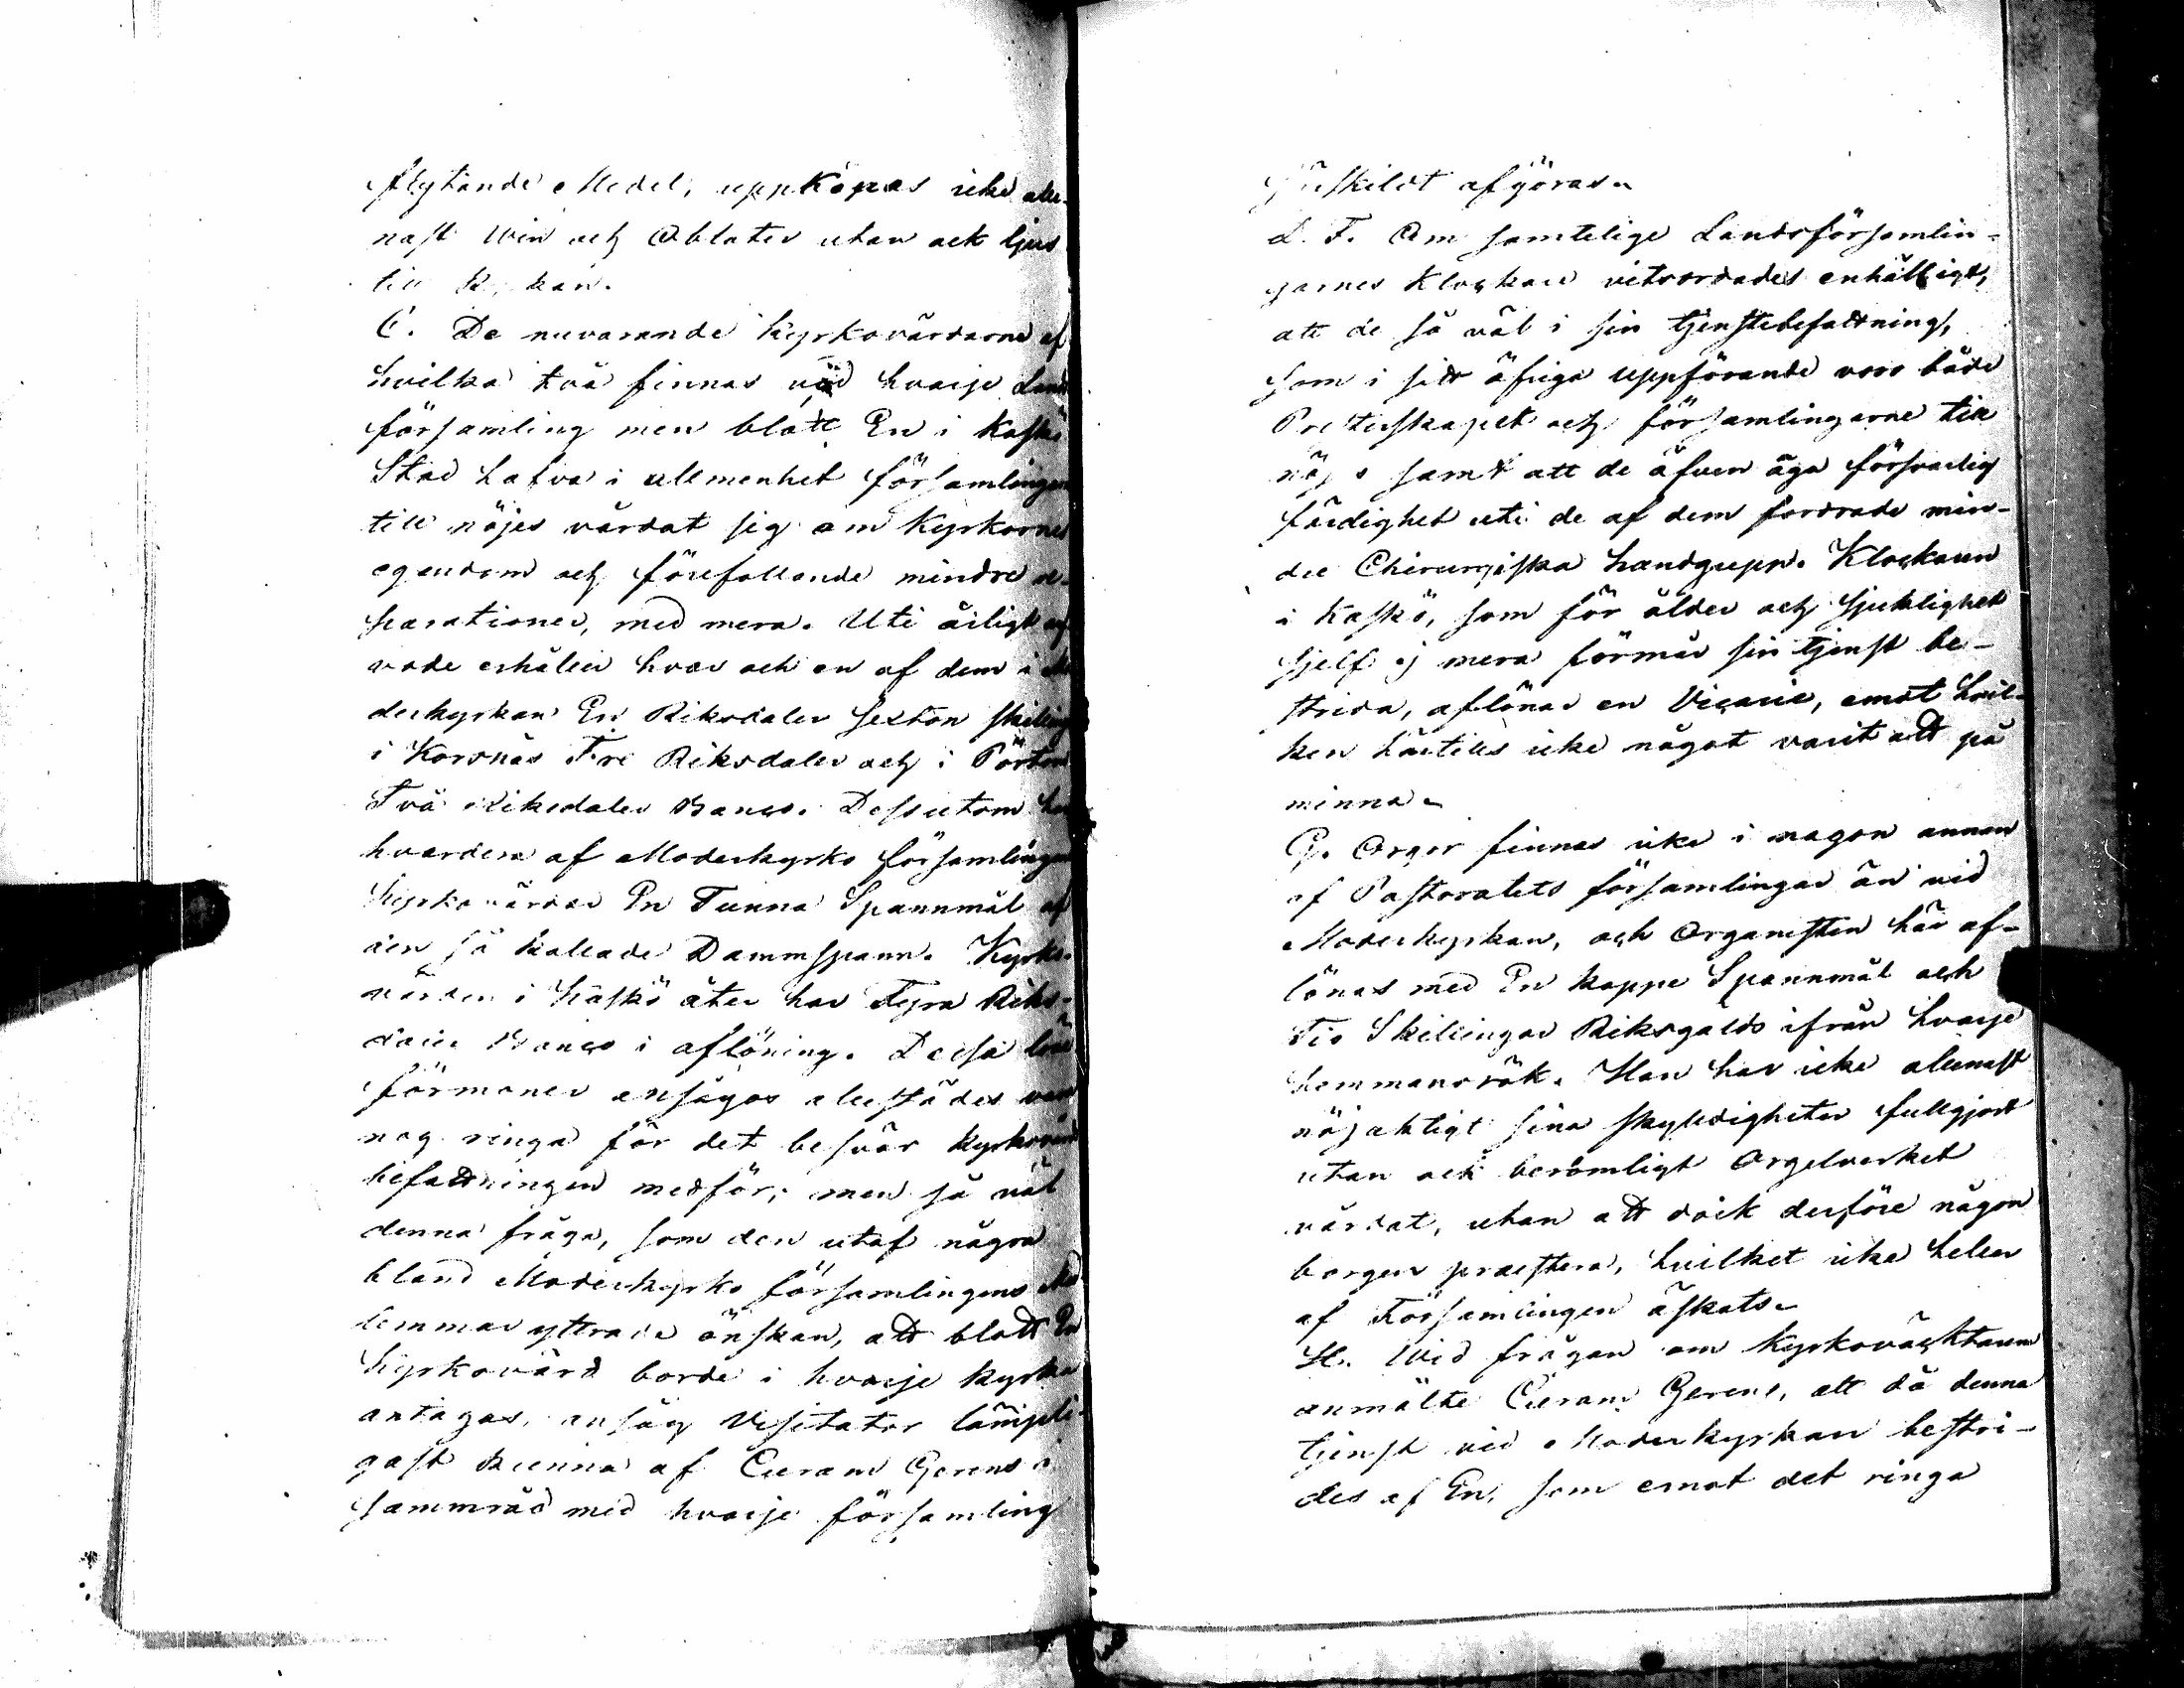 flytande Medel, uppköpas icke alle-
nast Win och Oblater utan ock ljus
till Kyrkan.
E. De nuvarande Kyrkovärdarne af
hvilka två finnas vid hvarje Lands
församling men blott En i Kaskö
Stad hafva i allmenhet församlingen
till nöjes vårdat sig om Kyrkornes
egendom och förefallande mindre re-
parationer, med mera. Uti årligt ar
vode erhåller hvar och en af dem i Mo
derkyrkan En Riksdaler sexton skilling
i Korsnäs Tre Riksdaler och i Pörtom
Två Riksdaler Banco. Dessutom har
hvardera af Moderkyrko församlingens
Kyrkovärdar En Tunna Spannmål af
den så kallade Dammspann. Kyrko-
värden i Kaskö åter har Fyra Riks-
daler Banco i aflöning. Dessa löne
förmoner ansågos allestädes vara
nog ringa för det besvär Kyrkovärd
befattningen medför; men så väl
denna fråga, som den utaf några
bland Moderkyrko församlingens Med
lemmar yttrade önskan, att blott En
Kyrkovärd borde i hvarje kyrka
antagas, ansåg Visitator lämpli-
gast kunna af Curam Gerens i
sammråd med hvarje församling
särskildt afgöras.
L. F. Om samtelige Landsförsamlin-
garnes Klockare vitsordades enhälligt,
att de så väl i sin tjenstebefattning,
som i sitt öfriga uppförande voro både
Presterskapet och församlingarne till
nöjes samt att de äfven äga försvarlig
färdighet uti de af dem fordrade min-
dre Chirurgiska handgrepp. Klockaren
i Kaskö, som för ålder och sjuklighet
sjelf ej mera förmår sin tjenst be-
strida, aflönar en Vicarie, emot hvil-
ken härtills icke något varit att på
minna.
G. Orgor finnas icke i någon annan
af Pastoratets församlingar än vid
Moderkyrkan, och Organisten här af-
lönas med En kappe Spannmål och
Tio Skillingar Riksgälds ifrån hvarje
hemmansrök. Han har icke allenast
nöjaktigt sina skyldigheter fullgjort
utan ock berömligt Orgelverket
vårdat, utan att dock derföre någon
borgen præstera, hvilket icke heller
af Församlingen äskats.
H. Wid frågan om Kyrkovächtaren
anmälte Curam Gerens, att då denna
tjenst vid Moderkyrkan bestri-
des af En, som emot det ringa